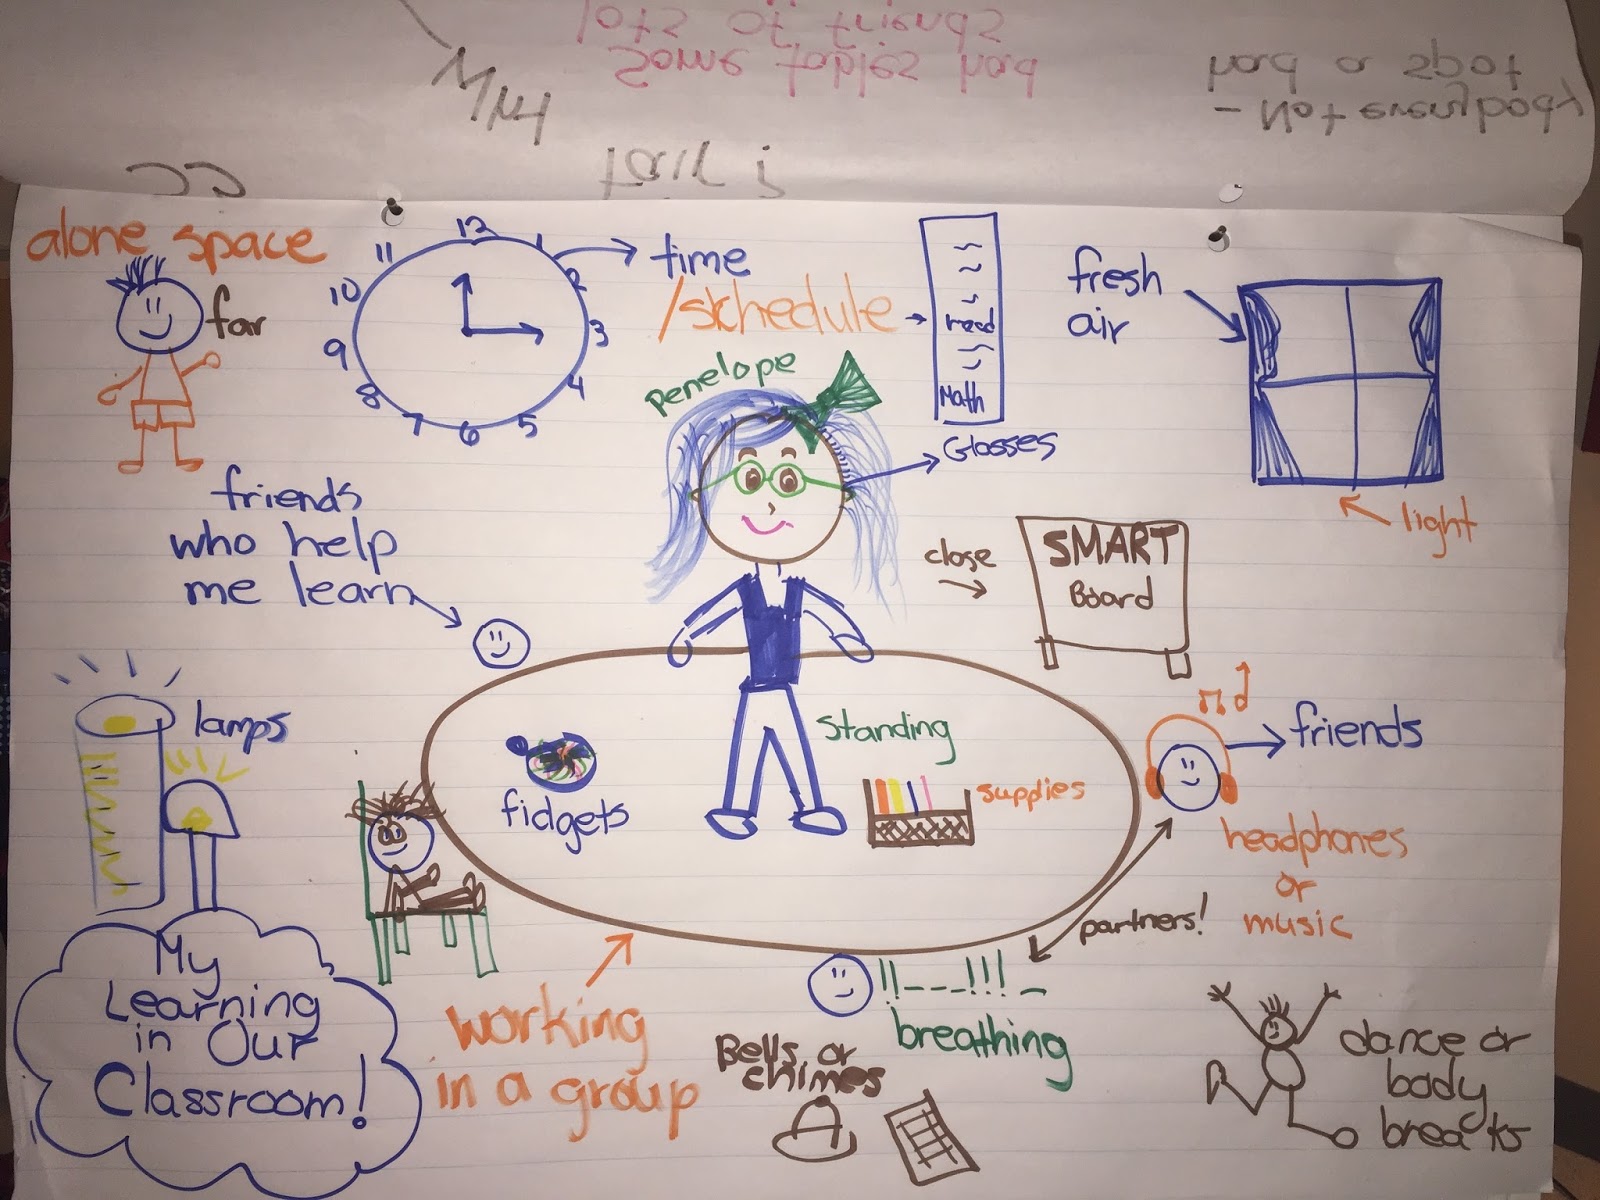 fair?
Why
- Not everybody
had a spot
Some tables had
lots of friends
alone space
far
12
1
2
3
4
5
6
7
8
9
10
11
time
/schedule
read
Math
fresh
air
light
Penelope
Glasses
friends
who help
me learn
close
SMART
Board
lamps
fidgets
standing
supplies
friends
headphones
or
music
partners!
My
Learning
in Our
Classroom!
working
in a group
breathing
Bells or
chimes
dance or
body
breaks